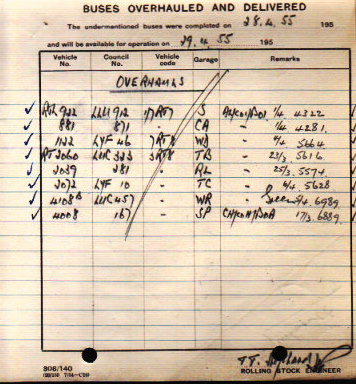 BUSES OVERHAULED AND DELIVERED
The undermentioned buses were completed on 28.4.55 195
and will be available for operation on 29.4.55 195
Vehicle No. Council No. Vehicle code Garage Remarks
OVERHAULS
RTL 922 LLU 912 7RT7 S 1/4 4322
881 871 " CA " 1/4 4281
1122 LYF 46 7RT8 WD " 4/4 5664
RT 2060 LUC 323 3RT8 TB " 23/3 5616
2039 281 " AL " 25/3 5574
2072 LYF 10 " TC " 4/4 5628
4108 LUC 457 " WR 6989
4008 167 " SP 17/3 6889
306/140
ROLLING STOCK ENGINEER